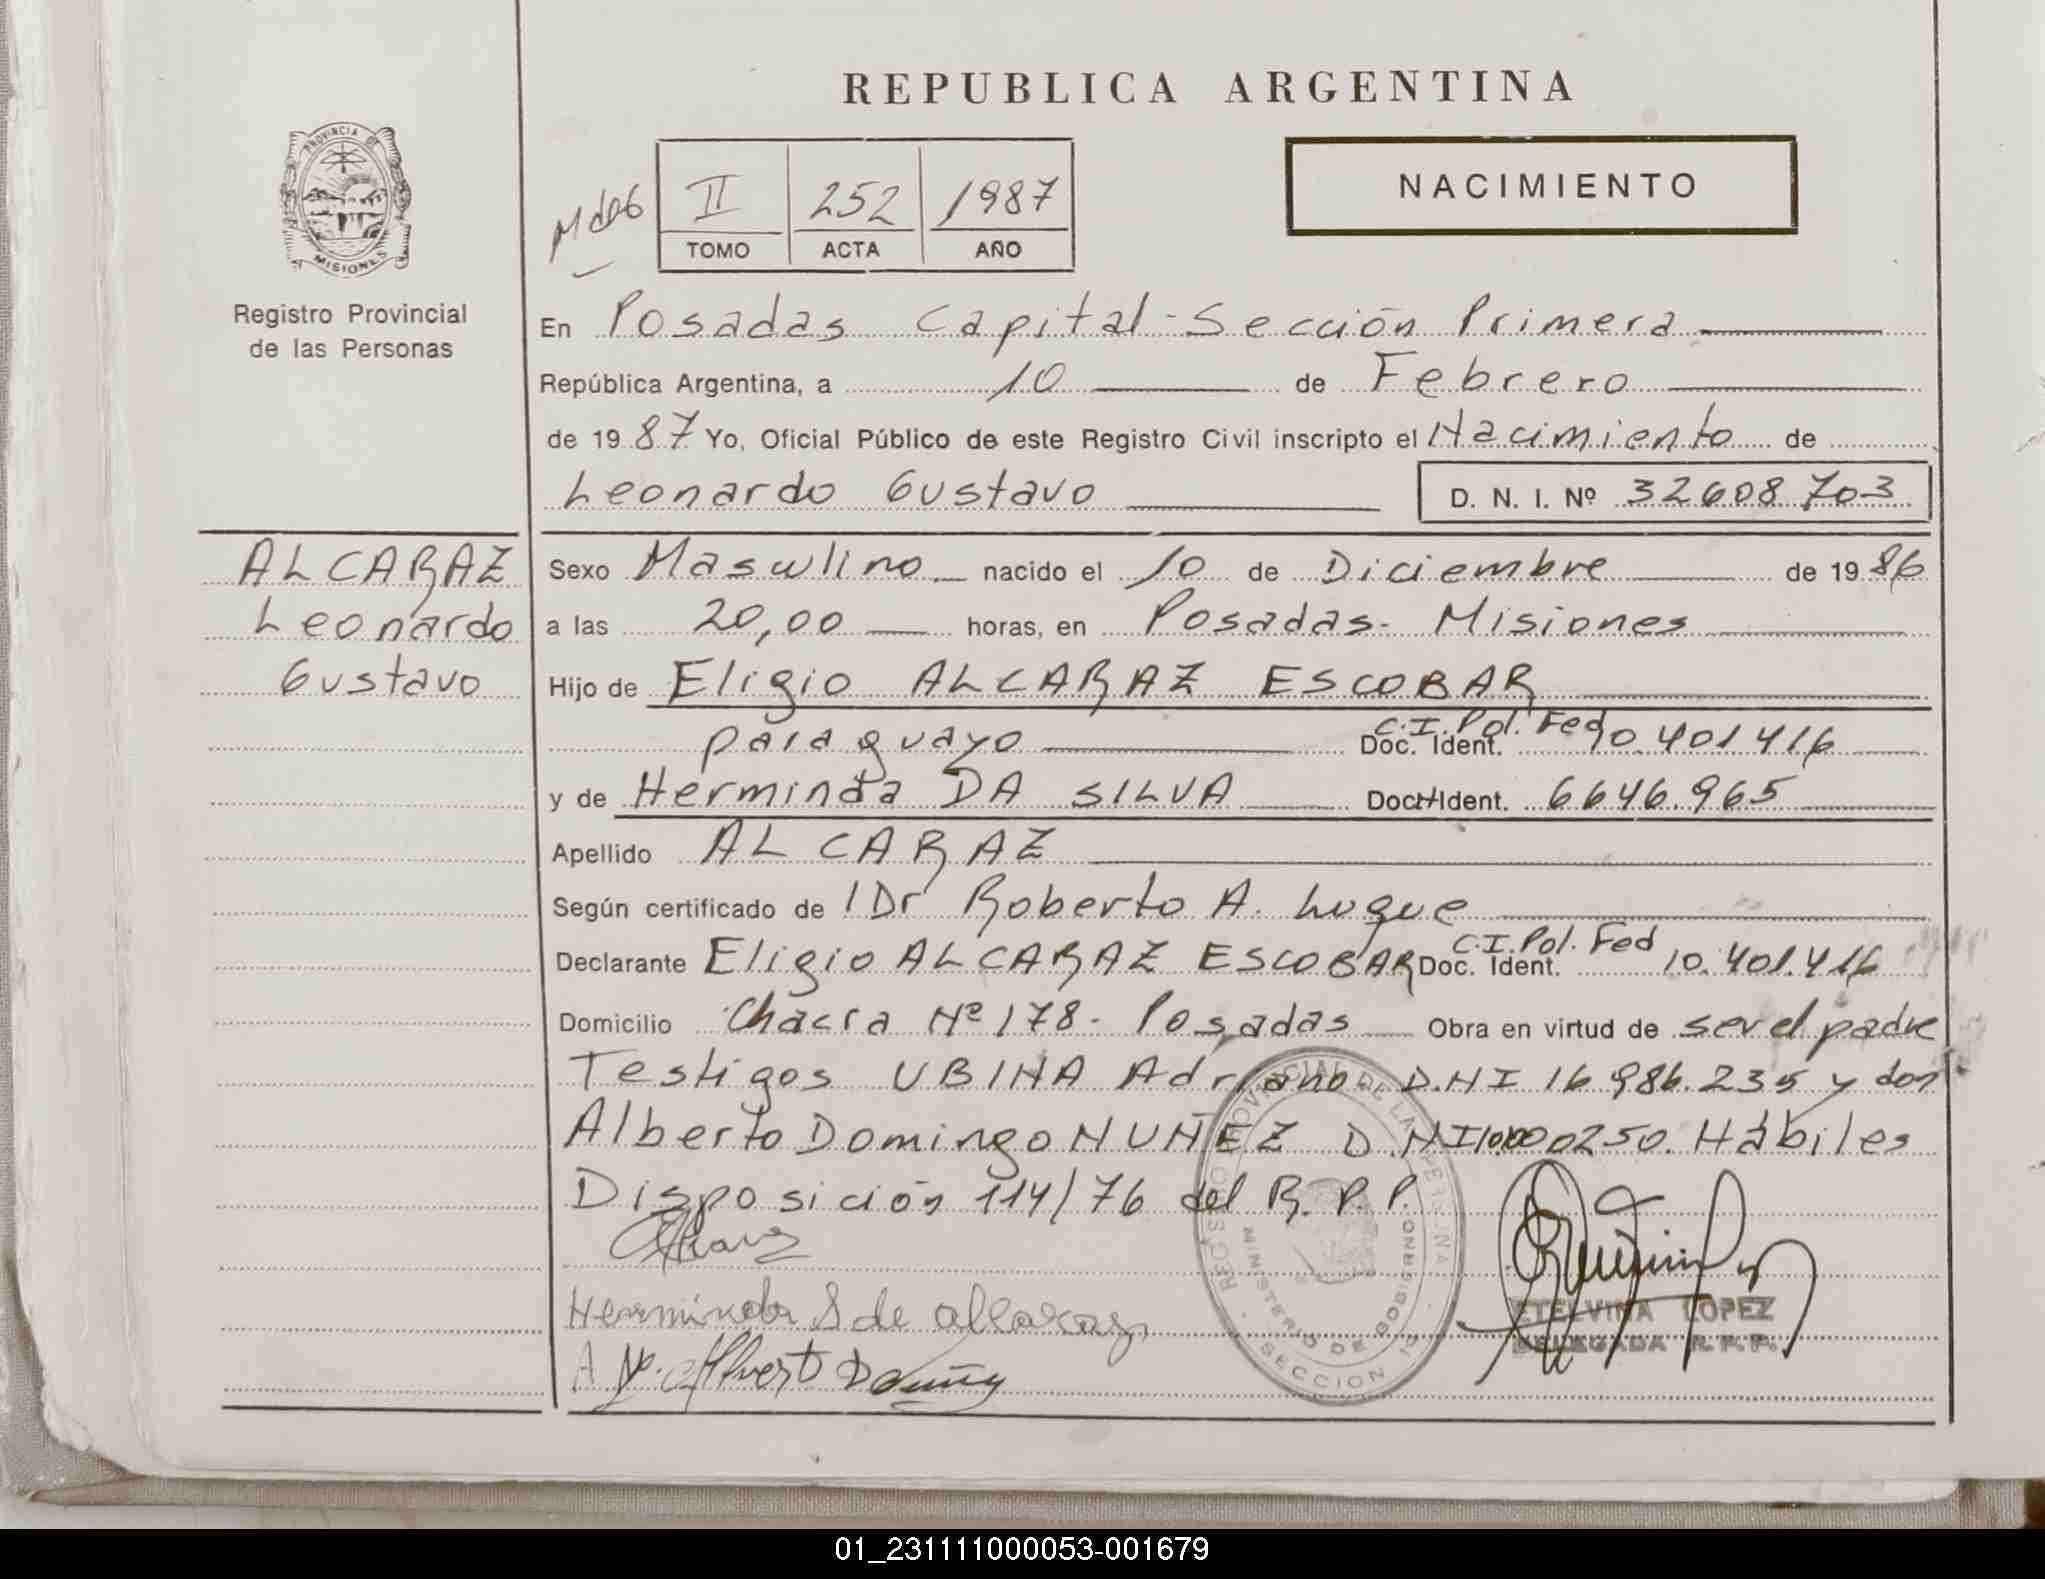 REPUBLICA ARGENTINA
PROVINCIA DE MISIONES
Registro Provincial
de las Personas
II 252 1987
TOMO ACTA AÑO
NACIMIENTO
En Posadas Capital - Sección Primera
República Argentina, a 10 de Febrero
de 1987 Yo, Oficial Público de este Registro Civil inscripto el Nacimiento de
Leonardo Gustavo D. N. I. Nº 32608703
ALCARAZ
Leonardo
Gustavo
Sexo Masculino nacido el 10 de Diciembre de 1986
a las 20,00 horas, en Posadas - Misiones
Hijo de Eligio ALCARAZ ESCOBAR
paraguayo C.I. Pol. Fed Doc. Ident. 10.401.416
y de Herminda DA SILVA Doc. Ident. 6646.965
Apellido ALCARAZ
Según certificado de l Dr Roberto A. Luque
Declarante Eligio ALCARAZ ESCOBAR C.I. Pol. Fed Doc. Ident. 10.401.416
Domicilio Chacra Nº 178 - Posadas Obra en virtud de ser el padre
Testigos UBINA Adriano D.N.I 16.986.235 y don
Alberto Domingo NUÑEZ D.N.I 10.000.250. Hábiles
Disposición 114/76 del R.P.P.
Herminda S de alcaraz
REGISTRO PROVINCIAL DE LAS PERSONAS
MINISTERIO DE GOBIERNO
SECCION 1ª
ETELVINA LOPEZ
DELEGADA R.P.P.
01_231111000053-001679